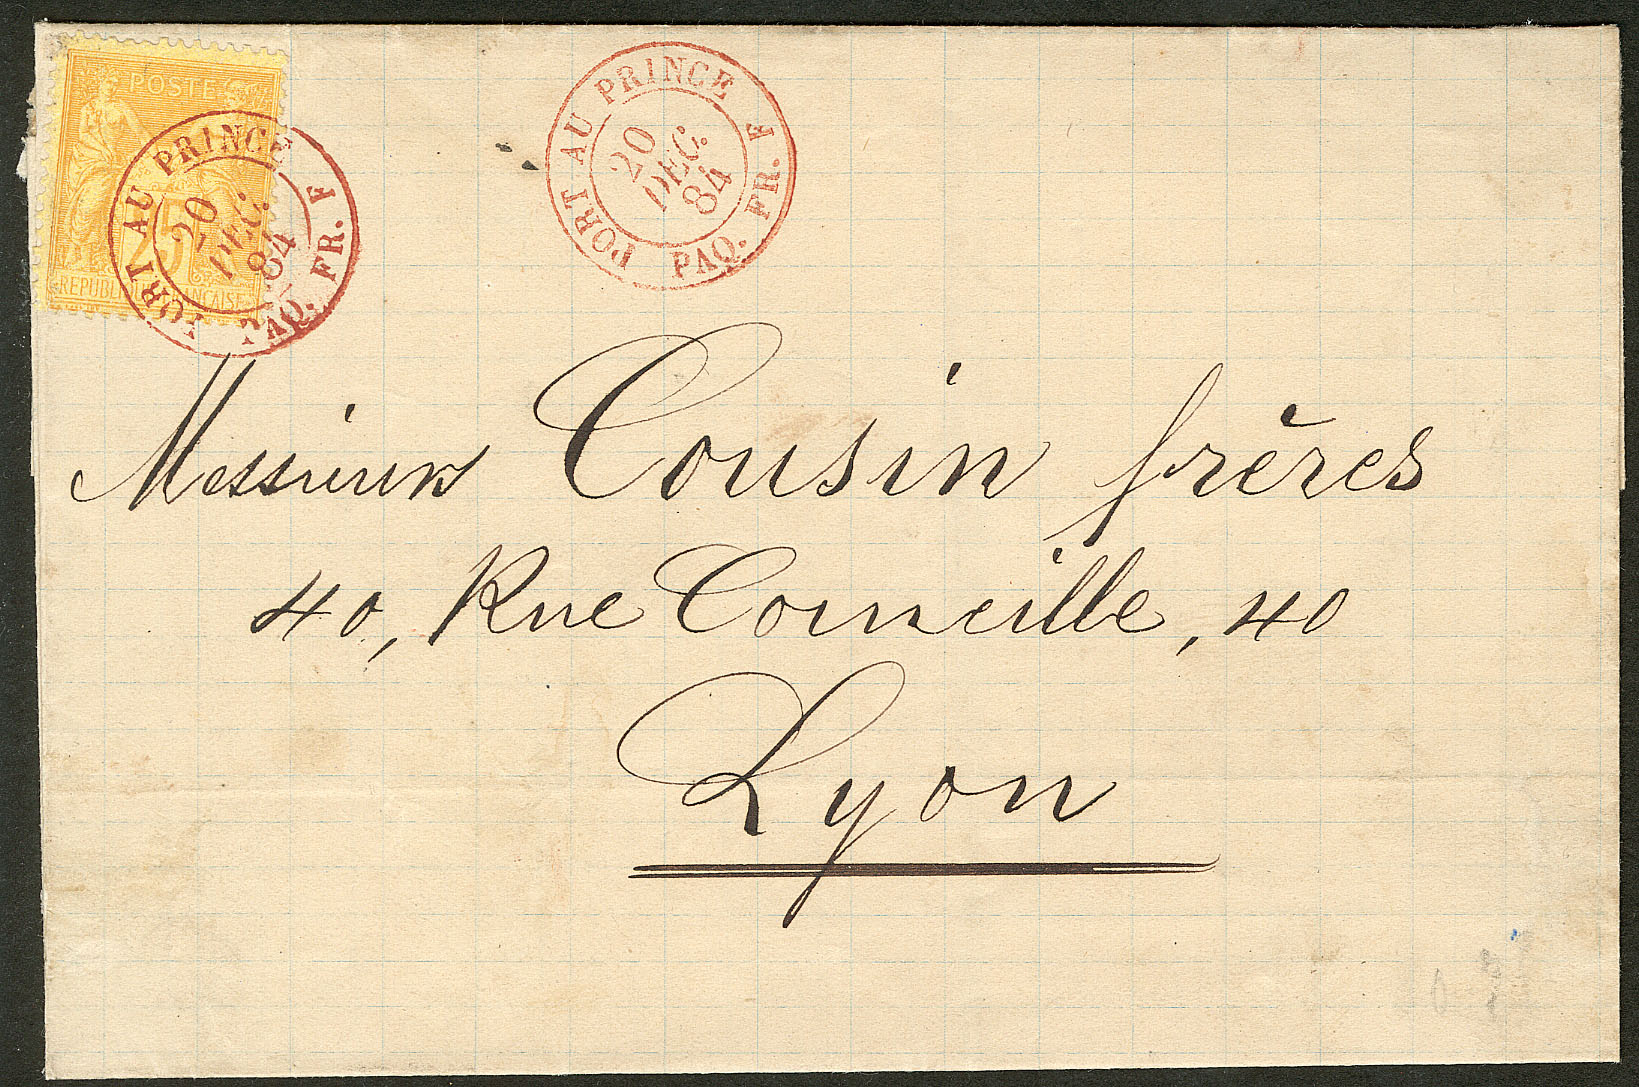 POSTE
25
REPUBLIQUE FRANCAISE
PORT AU PRINCE
20
DEC.
84
PAQ. FR. F
PORT AU PRINCE
20
DEC.
84
PAQ. FR. F
Messieurs Cousin frères
40, Rue Corneille, 40
Lyon